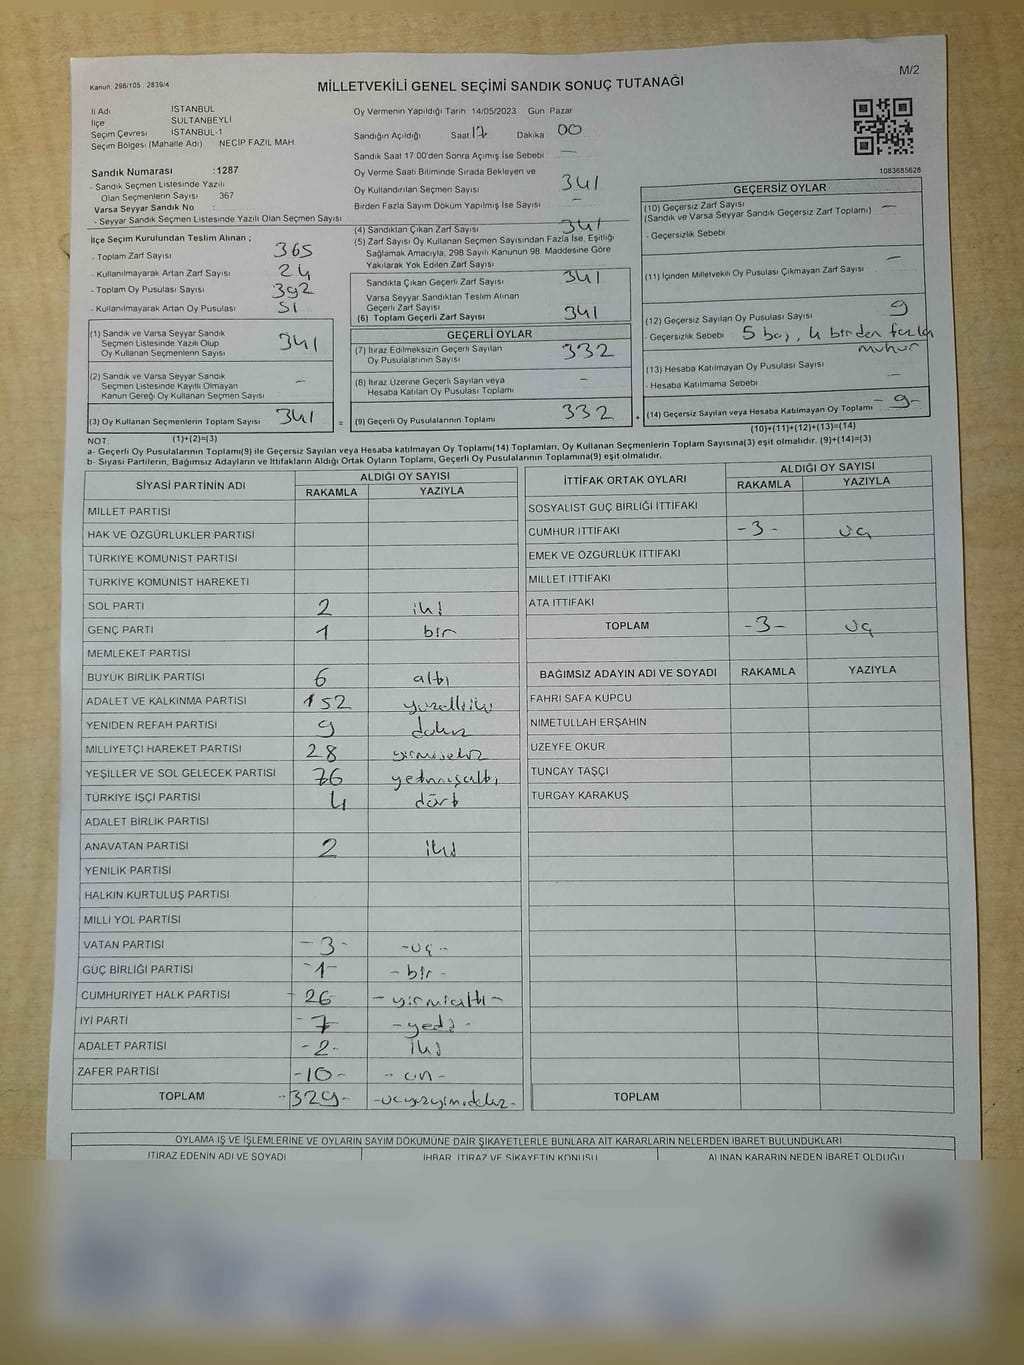 Kanun. 298/105 . 2839/4
M/2
MİLLETVEKİLİ GENEL SEÇİMİ SANDIK SONUÇ TUTANAĞI
İl Adı İSTANBUL
İlçe SULTANBEYLİ
Seçim Çevresi İSTANBUL-1
Seçim Bölgesi (Mahalle Adı) NECİP FAZIL MAH.
Sandık Numarası :1287
- Sandık Seçmen Listesinde Yazılı
Olan Seçmenlerin Sayısı 367
Varsa Seyyar Sandık No :
- Seyyar Sandık Seçmen Listesinde Yazılı Olan Seçmen Sayısı
Oy Vermenin Yapıldığı Tarih 14/05/2023 Gün Pazar
Sandığın Açıldığı Saat 17 Dakika 00
Sandık Saat 17:00'den Sonra Açımış İse Sebebi —
Oy Verme Saati Bitiminde Sırada Bekleyen ve
Oy Kullandırılan Seçmen Sayısı 341
Birden Fazla Sayım Döküm Yapılmış İse Sayısı —
1083685628
İlçe Seçim Kurulundan Teslim Alınan ;
- Toplam Zarf Sayısı 365
- Kullanılmayarak Artan Zarf Sayısı 24
- Toplam Oy Pusulası Sayısı 392
- Kullanılmayarak Artan Oy Pusulası 51
(1) Sandık ve Varsa Seyyar Sandık
Seçmen Listesinde Yazılı Olup
Oy Kullanan Seçmenlerin Sayısı 341
(2) Sandık ve Varsa Seyyar Sandık
Seçmen Listesinde Kayıtlı Olmayan
Kanun Gereği Oy Kullanan Seçmen Sayısı —
(3) Oy Kullanan Seçmenlerin Toplam Sayısı 341 =
(4) Sandıktan Çıkan Zarf Sayısı 341
(5) Zarf Sayısı Oy Kullanan Seçmen Sayısından Fazla İse, Eşitliği
Sağlamak Amacıyla, 298 Sayılı Kanunun 98. Maddesine Göre
Yakılarak Yok Edilen Zarf Sayısı
Sandıkta Çıkan Geçerli Zarf Sayısı 341
Varsa Seyyar Sandıktan Teslim Alınan
Geçerli Zarf Sayısı
(6) Toplam Geçerli Zarf Sayısı 341
GEÇERLİ OYLAR
(7) İtiraz Edilmeksizin Geçerli Sayılan
Oy Pusulalarının Sayısı 332
(8) İtiraz Üzerine Geçerli Sayılan veya
Hesaba Katılan Oy Pusulası Toplamı —
(9) Geçerli Oy Pusulalarının Toplamı 332
GEÇERSİZ OYLAR
(10) Geçersiz Zarf Sayısı —
(Sandık ve Varsa Seyyar Sandık Geçersiz Zarf Toplamı)
- Geçersizlik Sebebi
(11) İçinden Milletvekili Oy Pusulası Çıkmayan Zarf Sayısı —
(12) Geçersiz Sayılan Oy Pusulası Sayısı 9
- Geçersizlik Sebebi 5 boş, 4 birden fazla
mühür
(13) Hesaba Katılmayan Oy Pusulası Sayısı —
- Hesaba Katılmama Sebebi
(14) Geçersiz Sayılan veya Hesaba Katılmayan Oy Toplamı -9-
NOT: (1)+(2)=(3)
(10)+(11)+(12)+(13)=(14)
a- Geçerli Oy Pusulalarının Toplamı(9) ile Geçersiz Sayılan veya Hesaba katılmayan Oy Toplamı(14) Toplamları, Oy Kullanan Seçmenlerin Toplam Sayısına(3) eşit olmalıdır. (9)+(14)=(3)
b- Siyasi Partilerin, Bağımsız Adayların ve İttifakların Aldığı Ortak Oyların Toplamı, Geçerli Oy Pusulalarının Toplamına(9) eşit olmalıdır.
SİYASİ PARTİNİN ADI ALDIĞI OY SAYISI
RAKAMLA YAZIYLA
MİLLET PARTİSİ
HAK VE ÖZGÜRLÜKLER PARTİSİ
TÜRKİYE KOMÜNİST PARTİSİ
TÜRKİYE KOMÜNİST HAREKETİ
SOL PARTİ 2 iki
GENÇ PARTİ 1 bir
MEMLEKET PARTİSİ
BÜYÜK BİRLİK PARTİSİ 6 altı
ADALET VE KALKINMA PARTİSİ 152 yüzelliiki
YENİDEN REFAH PARTİSİ 9 dokuz
MİLLİYETÇİ HAREKET PARTİSİ 28 yirmisekiz
YEŞİLLER VE SOL GELECEK PARTİSİ 76 yetmişaltı
TÜRKİYE İŞÇİ PARTİSİ 4 dört
ADALET BİRLİK PARTİSİ
ANAVATAN PARTİSİ 2 iki
YENİLİK PARTİSİ
HALKIN KURTULUŞ PARTİSİ
MİLLİ YOL PARTİSİ
VATAN PARTİSİ -3- -üç-
GÜÇ BİRLİĞİ PARTİSİ -1- -bir-
CUMHURİYET HALK PARTİSİ - 26 -yirmialtı-
İYİ PARTİ -7 -yedi-
ADALET PARTİSİ -2- iki
ZAFER PARTİSİ -10- -on-
TOPLAM -329- -üçyüzyirmidokuz-
İTTİFAK ORTAK OYLARI ALDIĞI OY SAYISI
RAKAMLA YAZIYLA
SOSYALİST GÜÇ BİRLİĞİ İTTİFAKI
CUMHUR İTTİFAKI -3- üç
EMEK VE ÖZGÜRLÜK İTTİFAKI
MİLLET İTTİFAKI
ATA İTTİFAKI
TOPLAM -3- üç
BAĞIMSIZ ADAYIN ADI VE SOYADI RAKAMLA YAZIYLA
FAHRİ SAFA KÜPCÜ
NİMETULLAH ERŞAHİN
ÜZEYFE OKUR
TUNCAY TAŞÇI
TURGAY KARAKUŞ
TOPLAM
OYLAMA İŞ VE İŞLEMLERİNE VE OYLARIN SAYIM DÖKÜMÜNE DAİR ŞİKAYETLERLE BUNLARA AİT KARARLARIN NELERDEN İBARET BULUNDUKLARI
İTİRAZ EDENİN ADI VE SOYADI İHBAR, İTİRAZ VE ŞİKAYETİN KONUSU ALINAN KARARIN NEDEN İBARET OLDUĞU